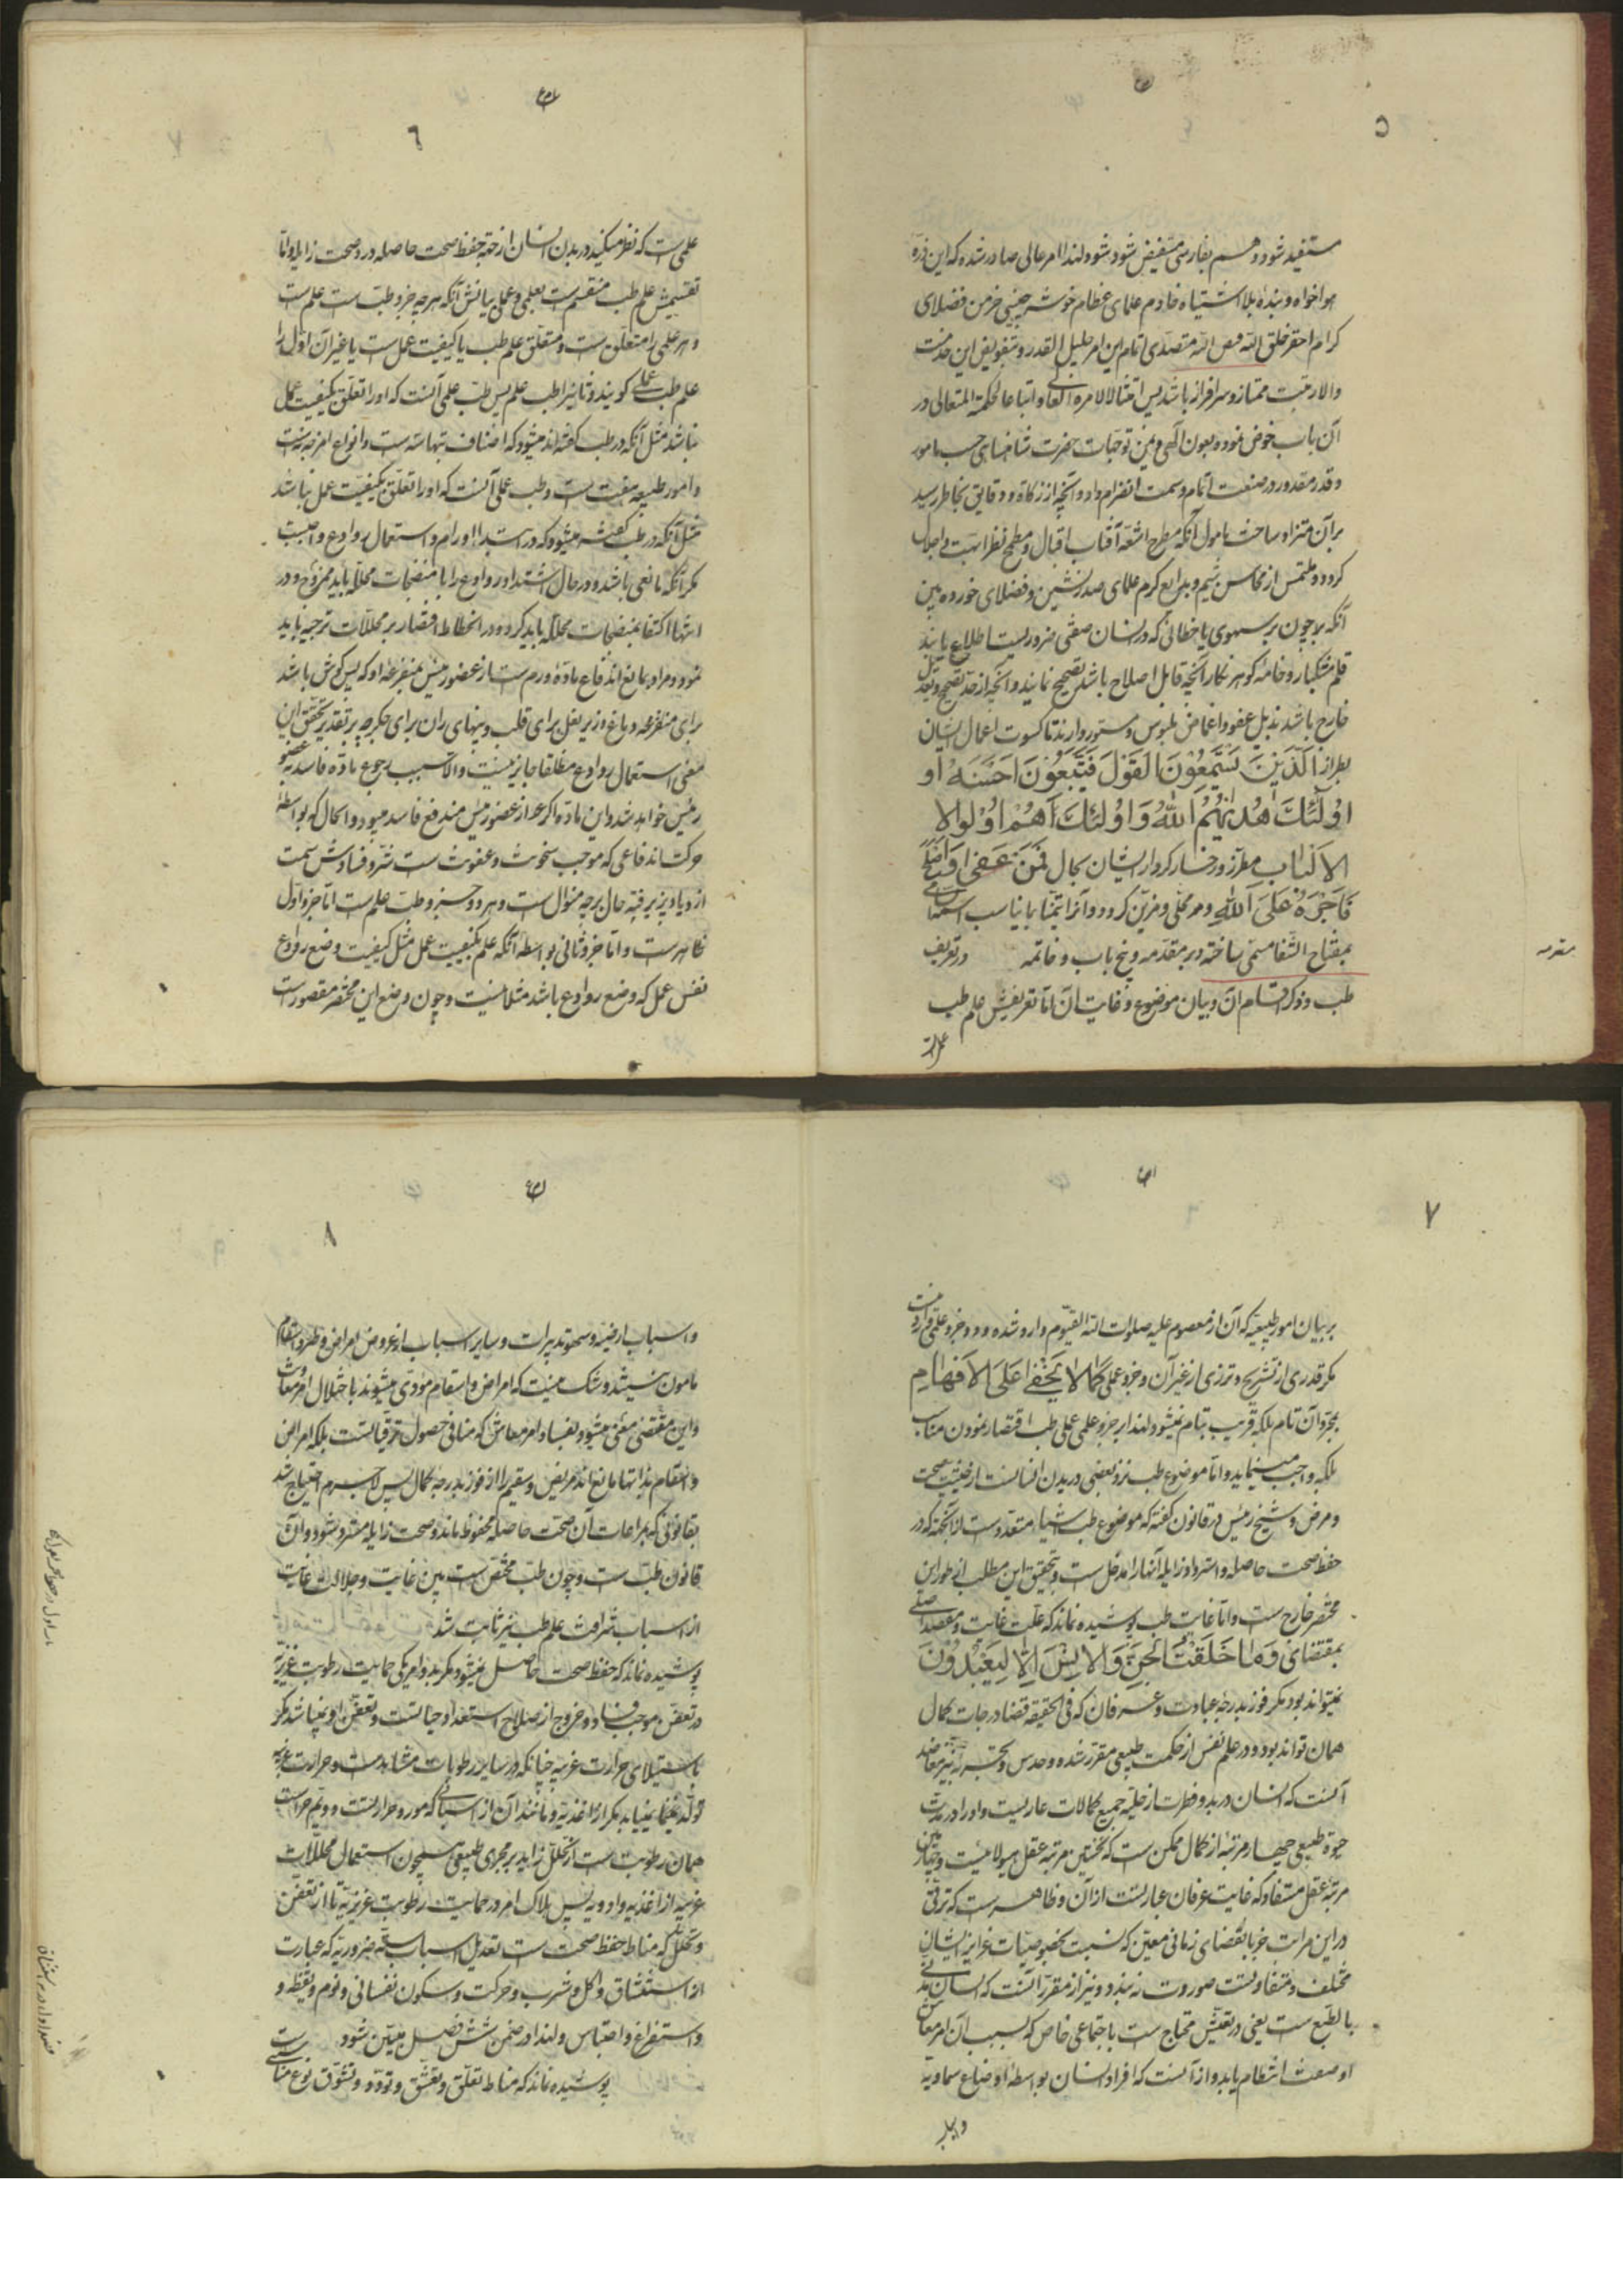 ۵
مستفید شود و هم بفارسی مستفیض شود شود لهذا امر عالی صادر شده که این ذره
هواخواه و بندهٔ بلا اشتباه خادم علمای عظام خوشه چین خرمن فضلای
کرام احقر خلق الله متصدی اتمام این امر جلیل القدر و بتفویض این خدمت
والا رتبت ممتاز و سرافراز باشد پس امتثالا لامره العالی و اتباعا لحکمه المتعالی در
آن باب خوض نمود و بعون الهی و یمن توجهات حضرت شاهنشاهی حسب مامور
و قدر مقدور در صنعت اتمام و سمت انضرام داد و آنچه از زکاة و دقایق بخاطر رسید
بر آن متزاد ساخت مامول آنکه مطرح اشعهٔ آفتاب اقبال و مطمح نظر
کردد و ملتمس از محاسن شیم و بدایع کرم علمای صدرنشین و فضلای خورده بین
آنکه چون بر سهوی یا خطائی که در انسان صفتی ضروریست اطلاع یابند
قلم مشکبار و خامه کوهر نکار آنچه قابل اصلاح باشد تصحیح نمایند و آنچه از حد تصحیح و تعدیل
خارج باشد بذیل عفو و اغماض ملبوس و مستور دارند تا کسوت اعمال ایشان
بطراز الَّذینَ یَسْتَمِعُونَ القَوْلَ فَیَتَّبِعُونَ اَحْسَنَهُ او
اُولٰئِكَ هَدٰیهُمُ اللّٰهُ وَ اُولٰئِكَ هُمْ اُوْلوا لا
الاَلْباب مطرز و رخسار کردار ایشان بکمال فَمَنْ عَفٰی وَ اَصْلَحَ
فَاَجْرُهُ عَلَی اللّٰهِ و مر محلی و مزین کردد و آنرا تیمنا بما یناسب اسمه السامی
بمفتاح الشفا مسمی ساخته و بر مقدمه و پنج باب و خاتمه در تعریف
طب و ذکر اقسام آن و بیان موضوع و غایت آن اما تعریفش علم طب
علمی
مقدمه
٦
علمی است که نظر میکنید در بدن انسان از جهة حفظ صحت حاصله و رد صحت زایله و اما
تقسیمش علم طب منقسم است بعلمی و عملی بیانش آنکه هر چه جزو طب است علم است
و هر علمی را متعلق است و متعلق علم طب یا کیفیت عمل است یا غیر آن اول را
علم طب عملی کویند و ثانی را طب علمی پس طب علمی آنست که او را تعلق بکیفیت عمل
نباشد مثل آنکه در طب کفته اند میشود که اصناف تبهاسه است و انواع امزجه نه است
و امور طبیعیه هفت است و طب عملی آنست که او را تعلق بکیفیت عمل نباشد
مثل آنکه در طب کفته میشود که در ابتدا اورام و استعمال روادع واجبست
مکر آنکه مانعی باشد و در حال اشتداد روادع را با منضجات محلله باید ممزوج و در
انتها اکتفا بمنضجات محلله باید کرد و در انحطاط اقتصار بر محللات ترجیه باید
نمود و مراد بمانع اندفاع مادهٔ ورم است از عضو رئیس بمفرغه او که پس کوش باشد
برای مفرغه دماغ و زیر بغل برای قلب و بنهای ران برای جکر چه بر تقدیر تحقق این
معنی استعمال روادع مطلقا جایز نیست و الا سبب رجوع مادهٔ فاسد به عضو
رئیس خواهد شد و این ماده اکر چه از عضو رئیس مندفع فاسد میبود و الحال که بواسطهٔ
حرکت اندفاعی که موجب سخونت و عفونت است شر و فسادش سمت
ازدیاد پذیرفته حال بر چه منوال است و هر دو جزو طب علم است اما جزو اول
ظاهر است و اما جزو ثانی بواسطهٔ آنکه علم بکیفیت عمل مثل کیفیت وضع روادع
نفس عمل که وضع روادع باشد مثلا نیست و چون وضع این مختصر مقصور است
۷
بر بیان امور طبیعیه که آن از معصوم علیه صلوات الله القیوم وارد شده و جزو علمی
مکر قدری از تشریح و نزری از غیر آن و جزو عملی کَمٰا لا یَخْفٰی عَلَی الاَفْهٰامِ
بمجرد آن تام بلکه قریب بتام نمیشود لهذا بر جزو علمی عملی طب اقتصار نمودن مناسب
بلکه واجب مینماید و اما موضوع طب نزد بعضی در بدن انسانست از حیثیت صحت
و مرض و شیخ رئیس در قانون کفته که موضوع طب اشیاء متعدد است لا نجهة که در
حفظ صحت حاصله و استرداد زایله آنها را مدخل است و تحقیق این مطلب از طور این
مختصر خارج است و اما غایت طب پوشیده نماند که علت غایت و مقصد اصلی
بمقتضای وَ مٰا خَلَقْتُ الْجِنَّ وَ الاِنْسَ اِلّا لِیَعْبُدُونَ
نمیتواند بود مکر فوز بدرجهٔ عبادت و عرفان که فی الحقیقه قضا درجات کمال
همان تواند بود و در علم نفس از حکمت طبیعی مقرر شده و حدس و تجربه نیز معاضد
آنست که انسان در بدو فطرت از حلیه جمیع کمالات عاریست و او را در مدت
حیوة طبیعی چهار مرتبه از کمال ممکن است که نخستین مرتبه عقل هیولانیست و
مرتبه عقل مستفاد که غایت عرفان عبارتست از آن و ظاهر است که ترقی
در این مراتب جز بانقضای زمانی معین که نسبت بخصوصیات غرایز انسان
مختلف و متفاوتست صورت نه بندد و نیز از مقررانست که انسان مدنی
بالطبع است یعنی در تعیش محتاج است باجتماعی خاص که بسبب آن امر معاش
او صنعت انتظام یابد و از آنست که افراد انسان بواسطهٔ اوضاع سماویه
۸
و اسباب ارضیه و سوء تدبیرات و سایر اسباب از عروض امراض و طرو اسقام
مامون نیستند و شک نیست که امراض و اسقام مودی میشوند باختلال امر معاش
و این مقتضی معنی میشود بفساد امر معاش که منافی حصول ترقیاتست بلکه امراض
و اسقام بذاتها مانع اند مریض و سقیم را از فوز بدرجه کمال پس لاجرم احتیاج شد
بقانونی که بمراعات آن صحت حاصله محفوظ ماند و صحت زایله مسترد شود و آن
قانون طب است و چون طب مختص است بین غایت و جلالت غایت
از اسباب شرافت علم طب نیز ثابت شد
پوشیده نماند که حفظ صحت حاصل نمیشود مکر بدو امر یکی حمایت رطوبت غریزیه
از تعفن موجب فساد و خروج از صلاح استعداد حیاتست و تعفن او نمیباشد مکر
باستیلای حرارت غریبه چنانکه در سایر رطوبات مشاهد است و حرارت غریبه
تولد نمییابد مکر از اغذیه و مانند آن از اسبابی که مورد حرارتست دویم حراست
همان رطوبت است از تحلل زاید بر مجری طبیعی همچون استعمال محللات
غریبه از اغذیه و ادویه پس ملاک امر در حمایت رطوبت غریزیه تا از تعفن
و تحلل که مناط حفظ صحت است تعدیل اسباب سته ضروریه که عبارت
از استنشاق و اکل و شرب و حرکت و سکون نفسانی و نوم و یقظه و
و استفراغ و احتباس و لهذا در ضمن شش فصل مبین شود
پوشیده نماند که مناط تعلق و تعشق و تودد و تشوق نوع مناسبت